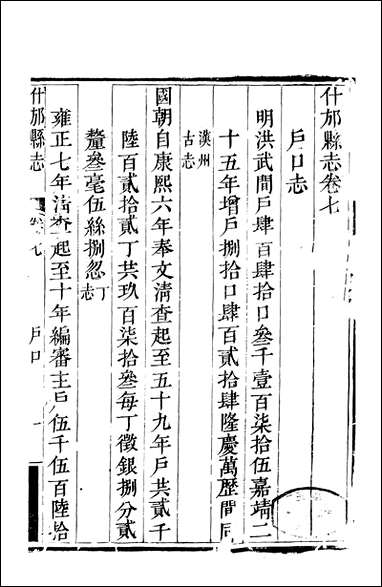 什邡縣志卷七
戶口志
明洪武間戶肆百肆拾口叄千壹百柒拾伍嘉靖二
十五年增戶捌拾口肆百貳拾肆隆慶萬歷間同
漢州
古志
國朝自康熙六年奉文淸查起至五十九年戶共貳千
陸百貳拾貳丁共玖百柒拾叄每丁徵銀捌分貳
釐叄毫伍絲捌忽
丁
志
雍正七年淸查起至十年編審主戶伍千伍百陸拾
什邡縣志 卷七 戶口 一